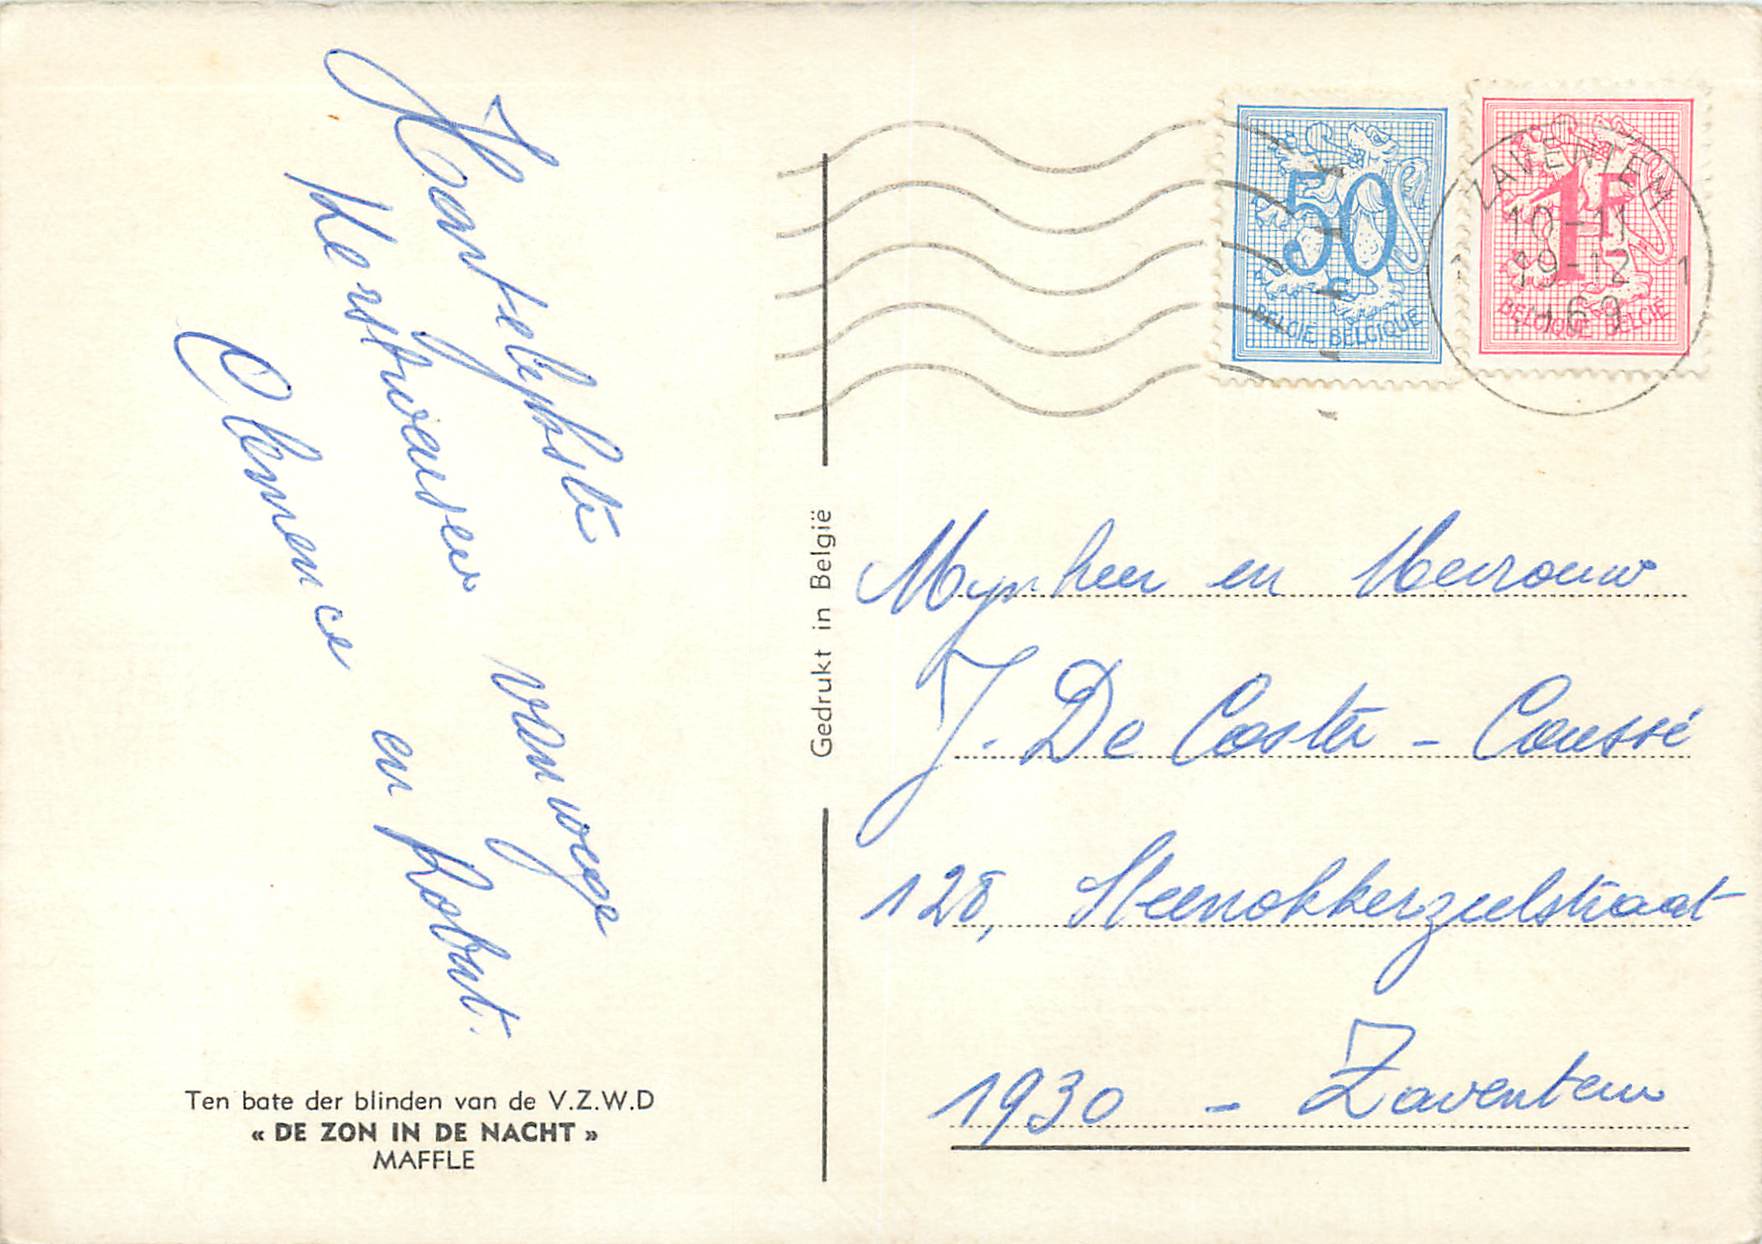 Hartelijkste
Kerstwensen vanwege
Clemence en Robert.
Ten bate der blinden van de V.Z.W.D
« DE ZON IN DE NACHT »
MAFFLE
Gedrukt in België
50
BELGIE BELGIQUE
1F
BELGIQUE BELGIE
ZAVENTEM
10-11
19-12
1969
1 1
Mijnheer en Mevrouw
J. De Coster - Coussé
128, Steenokkerzeelstraat
1930 - Zaventem